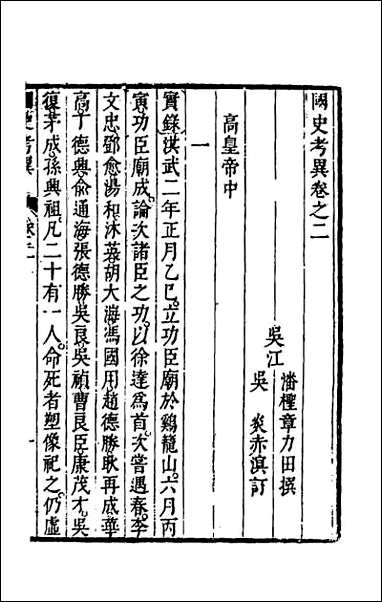 國史考異卷之二
吳江
潘檉章力田撰
吳炎赤溟訂
高皇帝中
一
實錄洪武二年正月乙巳立功臣廟於鷄籠山六月丙
寅功臣廟成論次諸臣之功以徐達爲首次嘗遇春李
文忠鄧愈湯和沐英胡大海馮國用趙德勝耿再成華
高丁德興俞通海張德勝吳良吳禎曹良臣康茂才吳
復茅成孫興祖凡二十有一人命死者塑像祀之仍虛